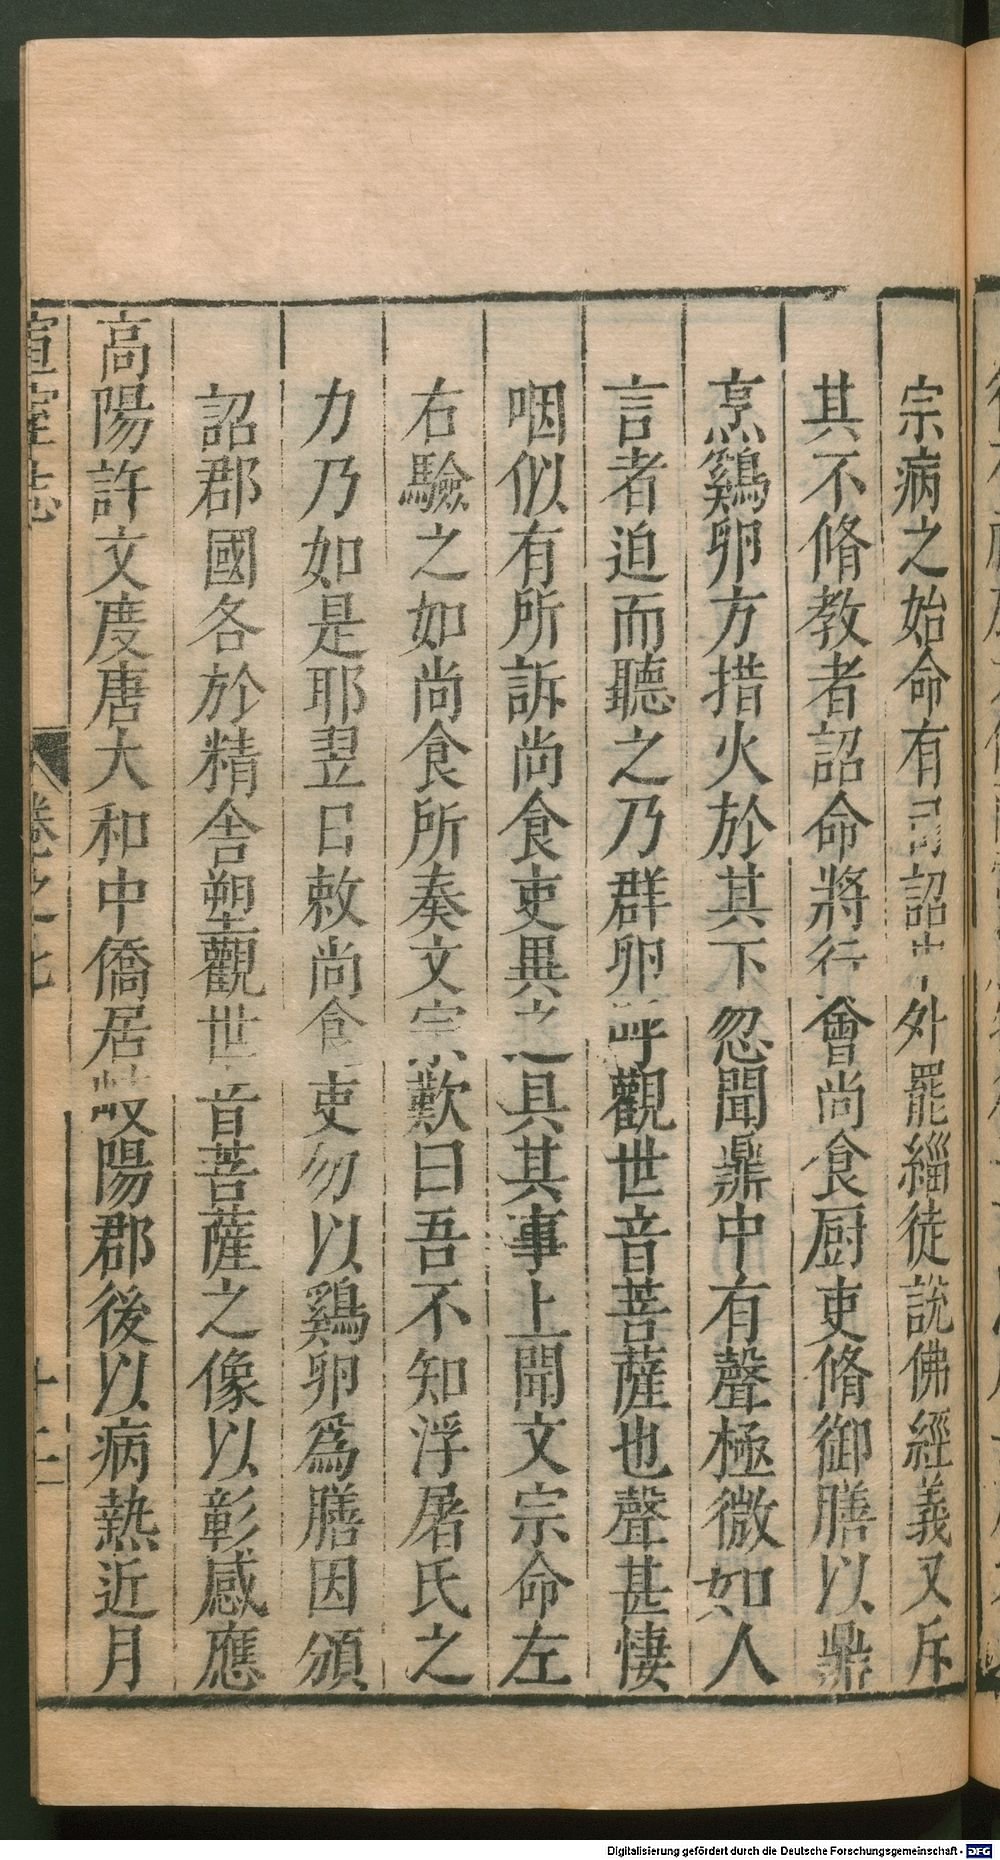 宗病之始命有司詔中外罷緇徒說佛經義又斥
其不脩教者詔命將行會尚食厨吏脩御膳以鼎
烹鷄卵方措火於其下忽聞鼎中有聲極微如人
言者迫而聽之乃群卵呼觀世音菩薩也聲甚悽
咽似有所訴尚食吏異之具其事上聞文宗命左
右驗之如尚食所奏文宗歎曰吾不知浮屠氏之
力乃如是耶翌日敕尚食吏勿以鷄卵爲膳因頒
詔郡國各於精舍塑觀世音菩薩之像以彰感應
高陽許文度唐大和中僑居岐陽郡後以病熱近月
宣室志
卷之七
十二
Digitalisierung gefördert durch die Deutsche Forschungsgemeinschaft - DFG